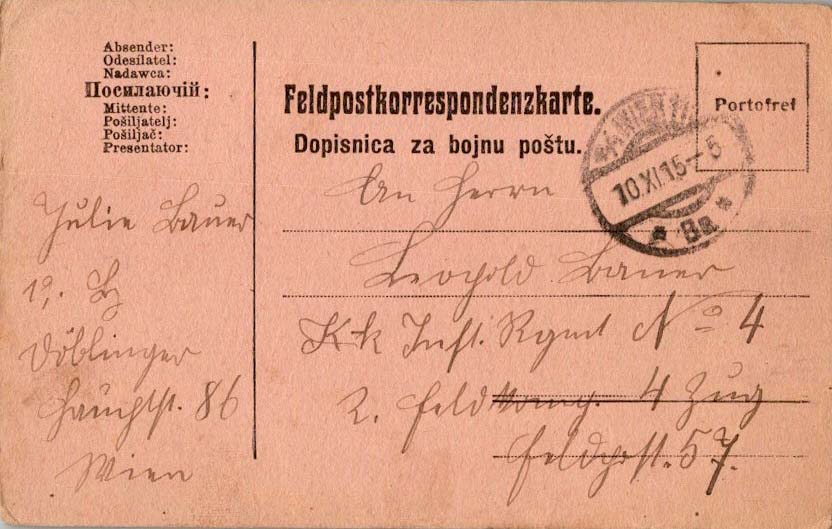 Absender:
Odesílatel:
Nadawca:
Посилаючiй:
Mittente:
Pošiljatelj:
Pošiljač:
Presentator:
Feldpostkorrespondenzkarte.
Dopisnica za bojnu poštu.
Portofrei
WIEN
10.XI.15-5
* Ba *
Julie Bauer
19. Bz
Döblinger
Hauptst. 86
Wien
An Herrn
Leopold Bauer
K k Inft. Rgmt No 4
2. Feldkomp. 4 Zug
Feldpost. 57.